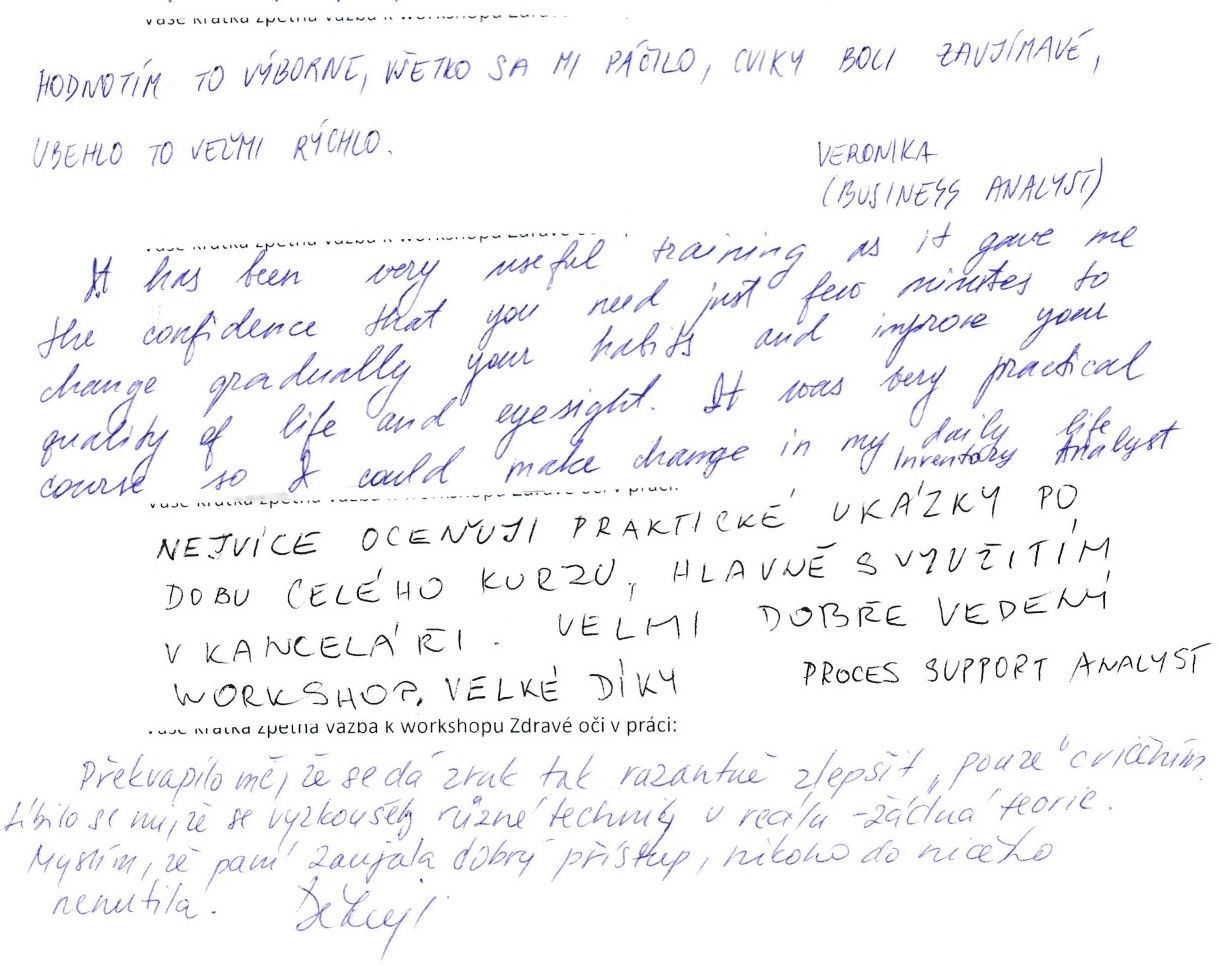 HODNOTÍM TO VÝBORNE, VŠETKO SA MI PÁČILO, CVIKY BOLI ZAUJÍMAVÉ,
UBEHLO TO VEĽMI RÝCHLO.
VERONIKA
(BUSINESS ANALYST)
It has been very useful training as it gave me
the confidence that you need just few minutes to
change gradually your habits and improve your
quality of life and eyesight. It was very practical
course so I could make change in my daily life
Inventory Analyst
NEJVÍCE OCEŇUJI PRAKTICKÉ UKÁZKY PO
DOBU CELÉHO KURZU, HLAVNĚ S VYUŽITÍM
V KANCELÁŘI. VELMI DOBŘE VEDENÝ
WORKSHOP. VELKÉ DÍKY
PROCES SUPPORT ANALYST
Vaše krátká zpětná vazba k workshopu Zdravé oči v práci:
Překvapilo mě, že se dá zrak tak razantně zlepšit „pouze“ cvičením.
Líbilo se mi, že se vyzkoušely různé techniky v reálu - žádná teorie.
Myslím, že paní zaujala dobrý přístup, nikoho do ničeho
nenutila. Děkuji